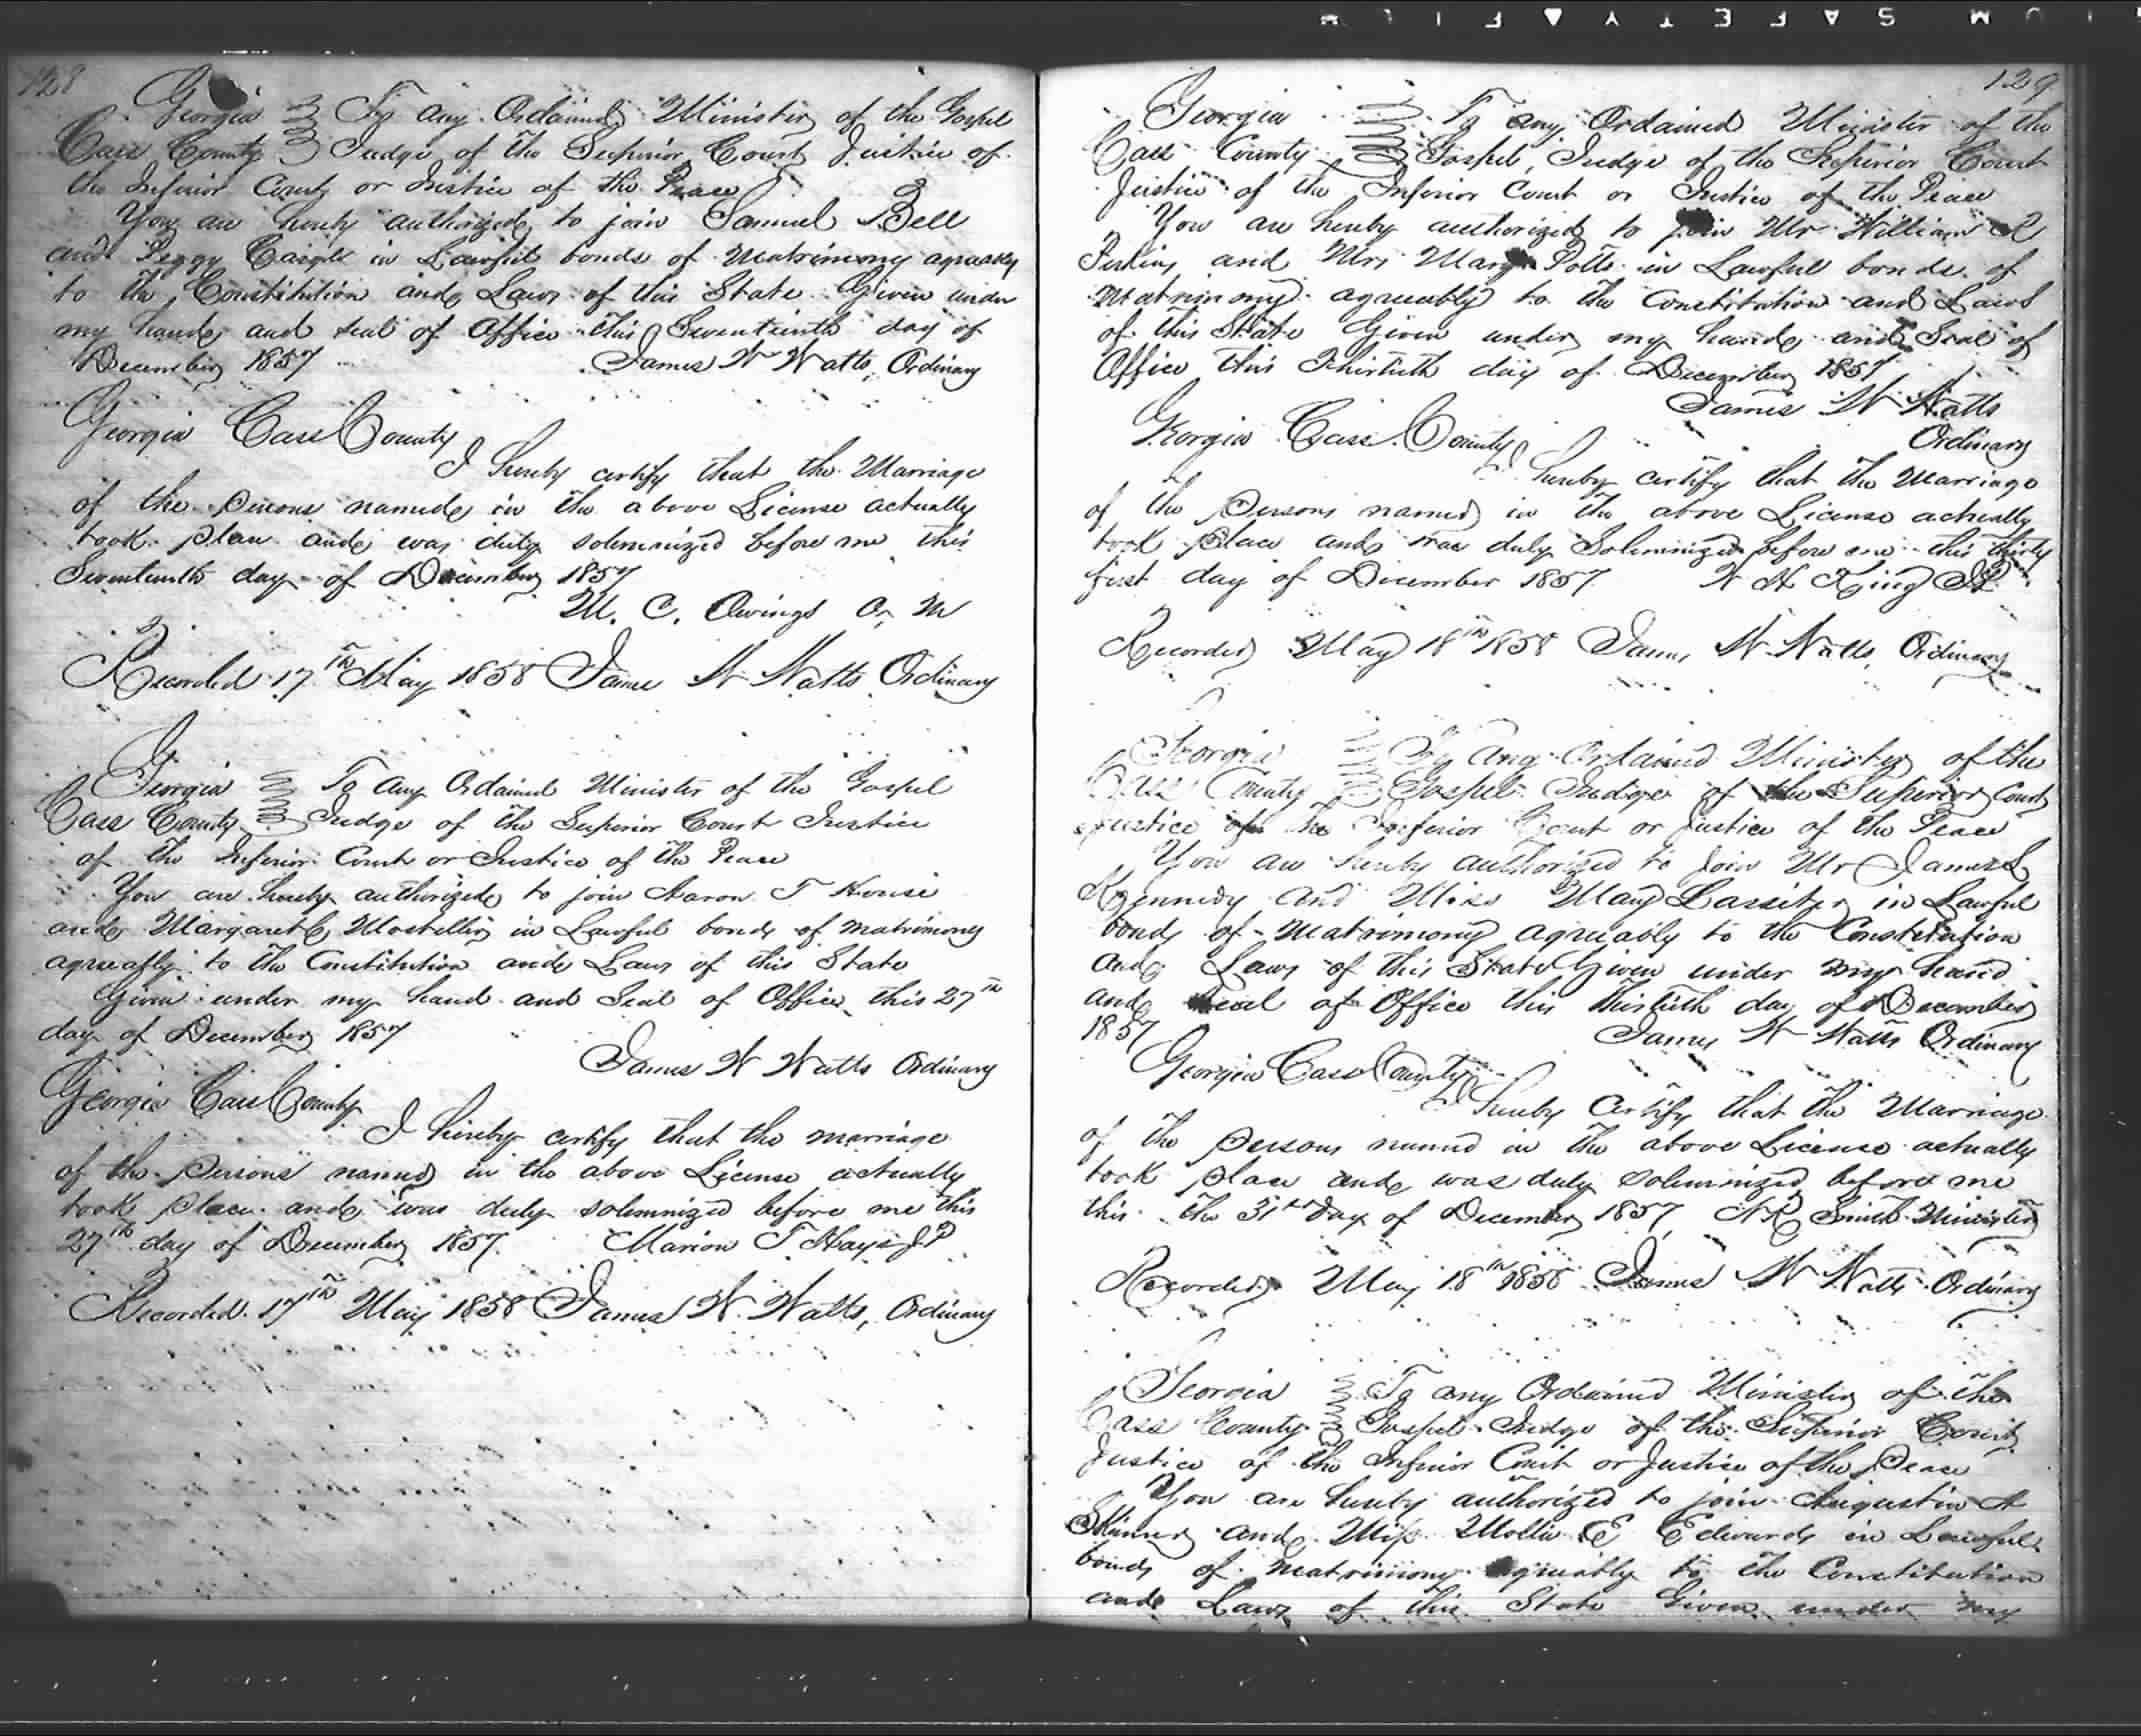 128
Georgia To any Ordained Minister of the Gospel
Cass County Judge of the Superior Court Justice of
the Inferior Court or Justice of the Peace
You are hereby authorized to join Samuel Bell
and Peggy Caigle in Lawful bonds of Matrimony agreeably
to the Constitution and Laws of this State Given under
my hand and seal of Office this Seventeenth day of
December 1857 James W Watts, Ordinary
Georgia Cass County
I hereby certify that the Marriage
of the persons named in the above License actually
took place and was duly solemnized before me this
Seventeenth day of December 1857
M. C. Owings O, M
Recorded 17th May 1858 James W Watts Ordinary
Georgia To any Ordained Minister of the Gospel
Cass County Judge of the Superior Court Justice
of the Inferior Court or Justice of the Peace
You are hereby authorized to join Aaron T House
and Margaret C Mosteller in Lawful bonds of Matrimony
agreeably to the Constitution and Laws of this State
Given under my hand and Seal of Office this 27th
day of December 1857
James W Watts Ordinary
Georgia Cass County
I hereby certify that the marriage
of the persons named in the above License actually
took place and was duly solemnized before me this
27th day of December 1857. Marion T Hays J.P
Recorded 17th May 1858 James W. Watts, Ordinary
129
Georgia To any Ordained Minister of the
Cass County Gospel, Judge of the Superior Court
Justice of the Inferior Court or Justice of the Peace
You are hereby authorized to join Mr William R
and Mrs Mary Potts in Lawful bonds of
Matrimony agreeably to the Constitution and Laws
of this State Given under my hand and Seal of
Office this Thirtieth day of December 1857
James W Watts
Ordinary
Georgia Cass County
I hereby certify that the Marriage
of the Persons named in the above License actually
took place and was duly Solemnized before me this thirty
first day of December 1857. W H King JP
Recorded May 18th 1858 James W Watts, Ordinary
Georgia To any Ordained Minister of the
Cass County Gospel Judge of the Superior Court
Justice of the Inferior Court or Justice of the Peace
You are hereby authorized to join Mr James L
Kennedy and Miss Mary Lassiter in Lawful
bonds of Matrimony agreeably to the Constitution
and Laws of this State Given under my hand
and seal of Office this thirtieth day of December
1857 James W Watts Ordinary
Georgia Cass County
I hereby Certify that the Marriage
of the persons named in the above License actually
took place and was duly solemnized before me
this the 31st day of December 1857 Smith Minister
Recorded May 18th 1858 James W Watts Ordinary
Georgia To any Ordained Minister of the
Cass County Gospel Judge of the Superior Court
Justice of the Inferior Court or Justice of the Peace
You are hereby authorized to join Augustin A
Skinner and Miss Mollie E Edwards in Lawful
bonds of matrimony agreeably to the Constitution
and Laws of this State Given under my